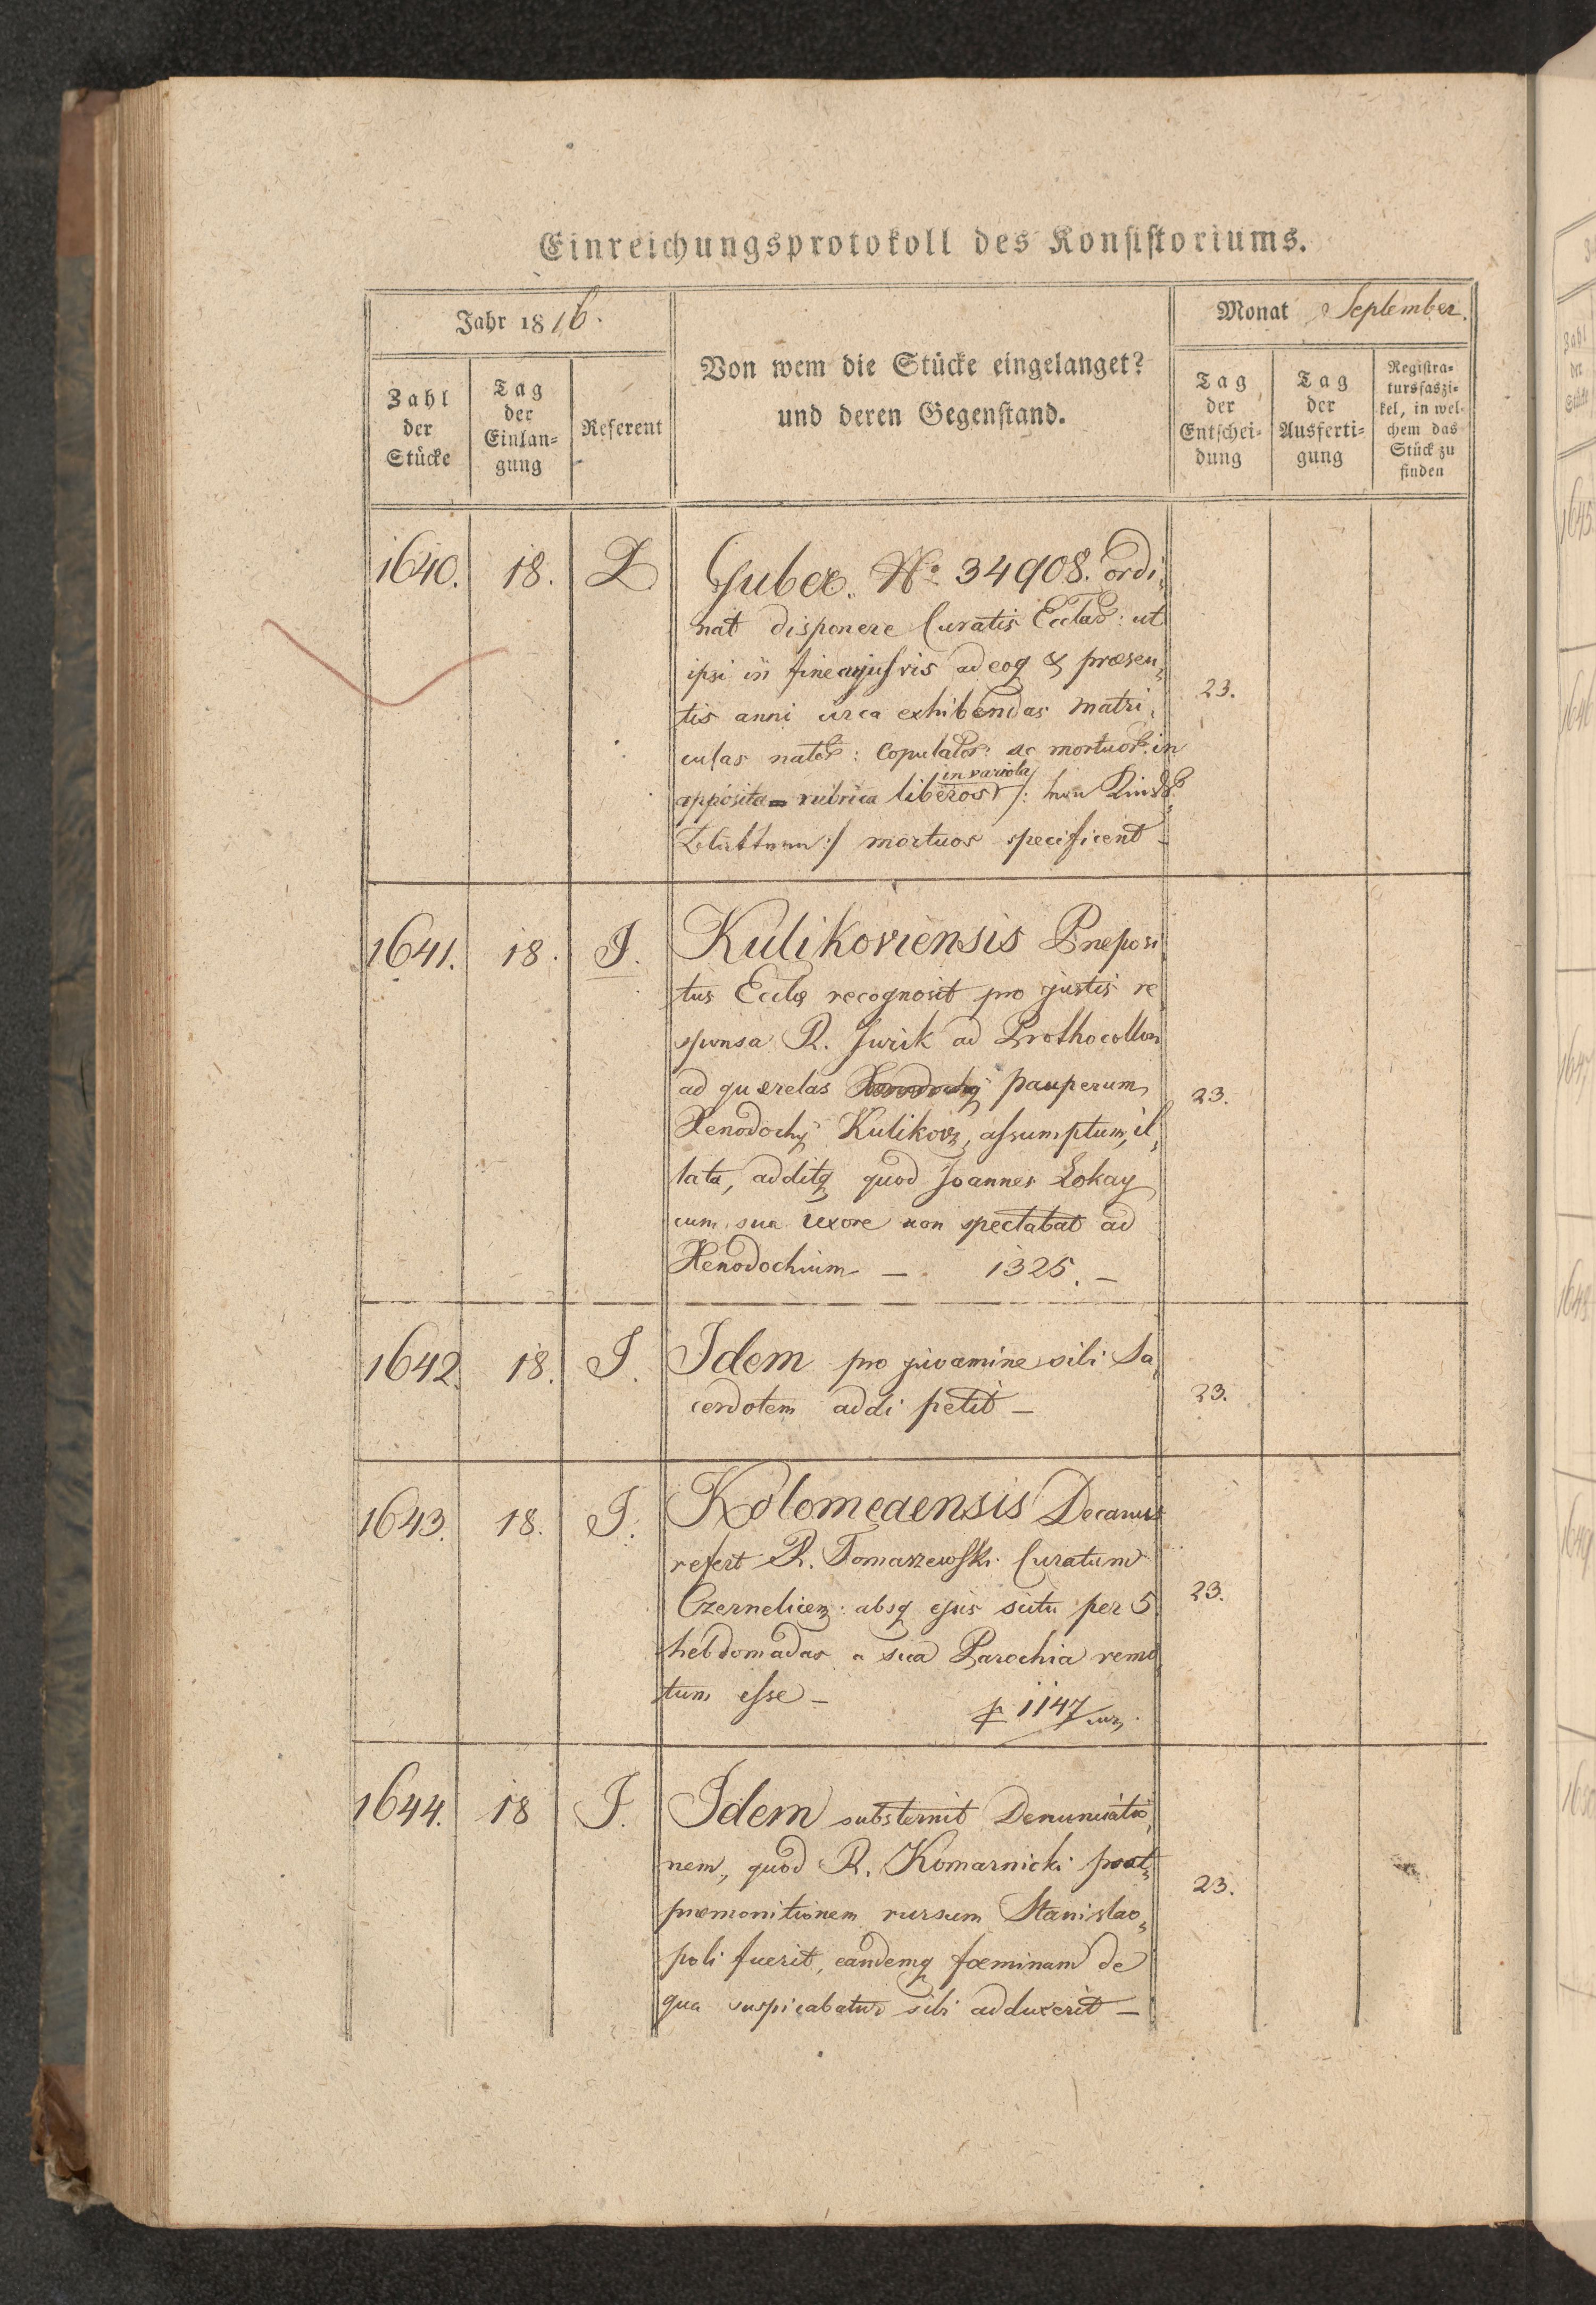 Einreichungsprotokoll des Konsistoriums.
Jahr 1816.
Monat September.
Zahl der Stücke
Tag der Einlan=gung
Referent
Von wem die Stücke eingelanget?
und deren Gegenstand.
Tag der Entschei=dung
Tag der Ausferti=gung
Registra=tursfaszi=kel, in wel=chem das Stück zu finden
1640. 18. Z Guber. No 34908. ordi,
nat disponere Curatis Eccles: ut
ipsi in fine cujusvis adeoq & præsen,
tis anni circa exhibendas matri,
culas nator: Copulator: ac mortuor: in
in variola
apposita rubrica liberos /:
:/ mortuos specificent –
23.
1641. 18. J. Kulikoviensis Præposi
tus Ecclæ recognosit pro justis re
sponsa R. Jurik ad Prothocollum
ad querelas pauperum
Xenodochij Kulikov, assumptum, il,
lata, additq quod Joannes Lokay
cum sua Uxore non spectabat ad
Xenodochium – 1325. –
23.
1642. 18. J. Idem pro juvamine sibi Sa,
cerdotem addi petit –
23.
1643. 18. J. Kolomeaensis Decanus
refert R. Tomaszewski Curatum
Czernelicen: absq ejus scitu per 5
hebdomadas a sua Parochia remo
tum esse –
1147
23.
1644. 18 J. Idem substernit Denunciatio,
nem, quod R. Komarnicki post
præmonitionem rursum Stanislao,
poli fuerit, eandemq fœminam de
qua suspicabatur sibi adduxerit –
23.